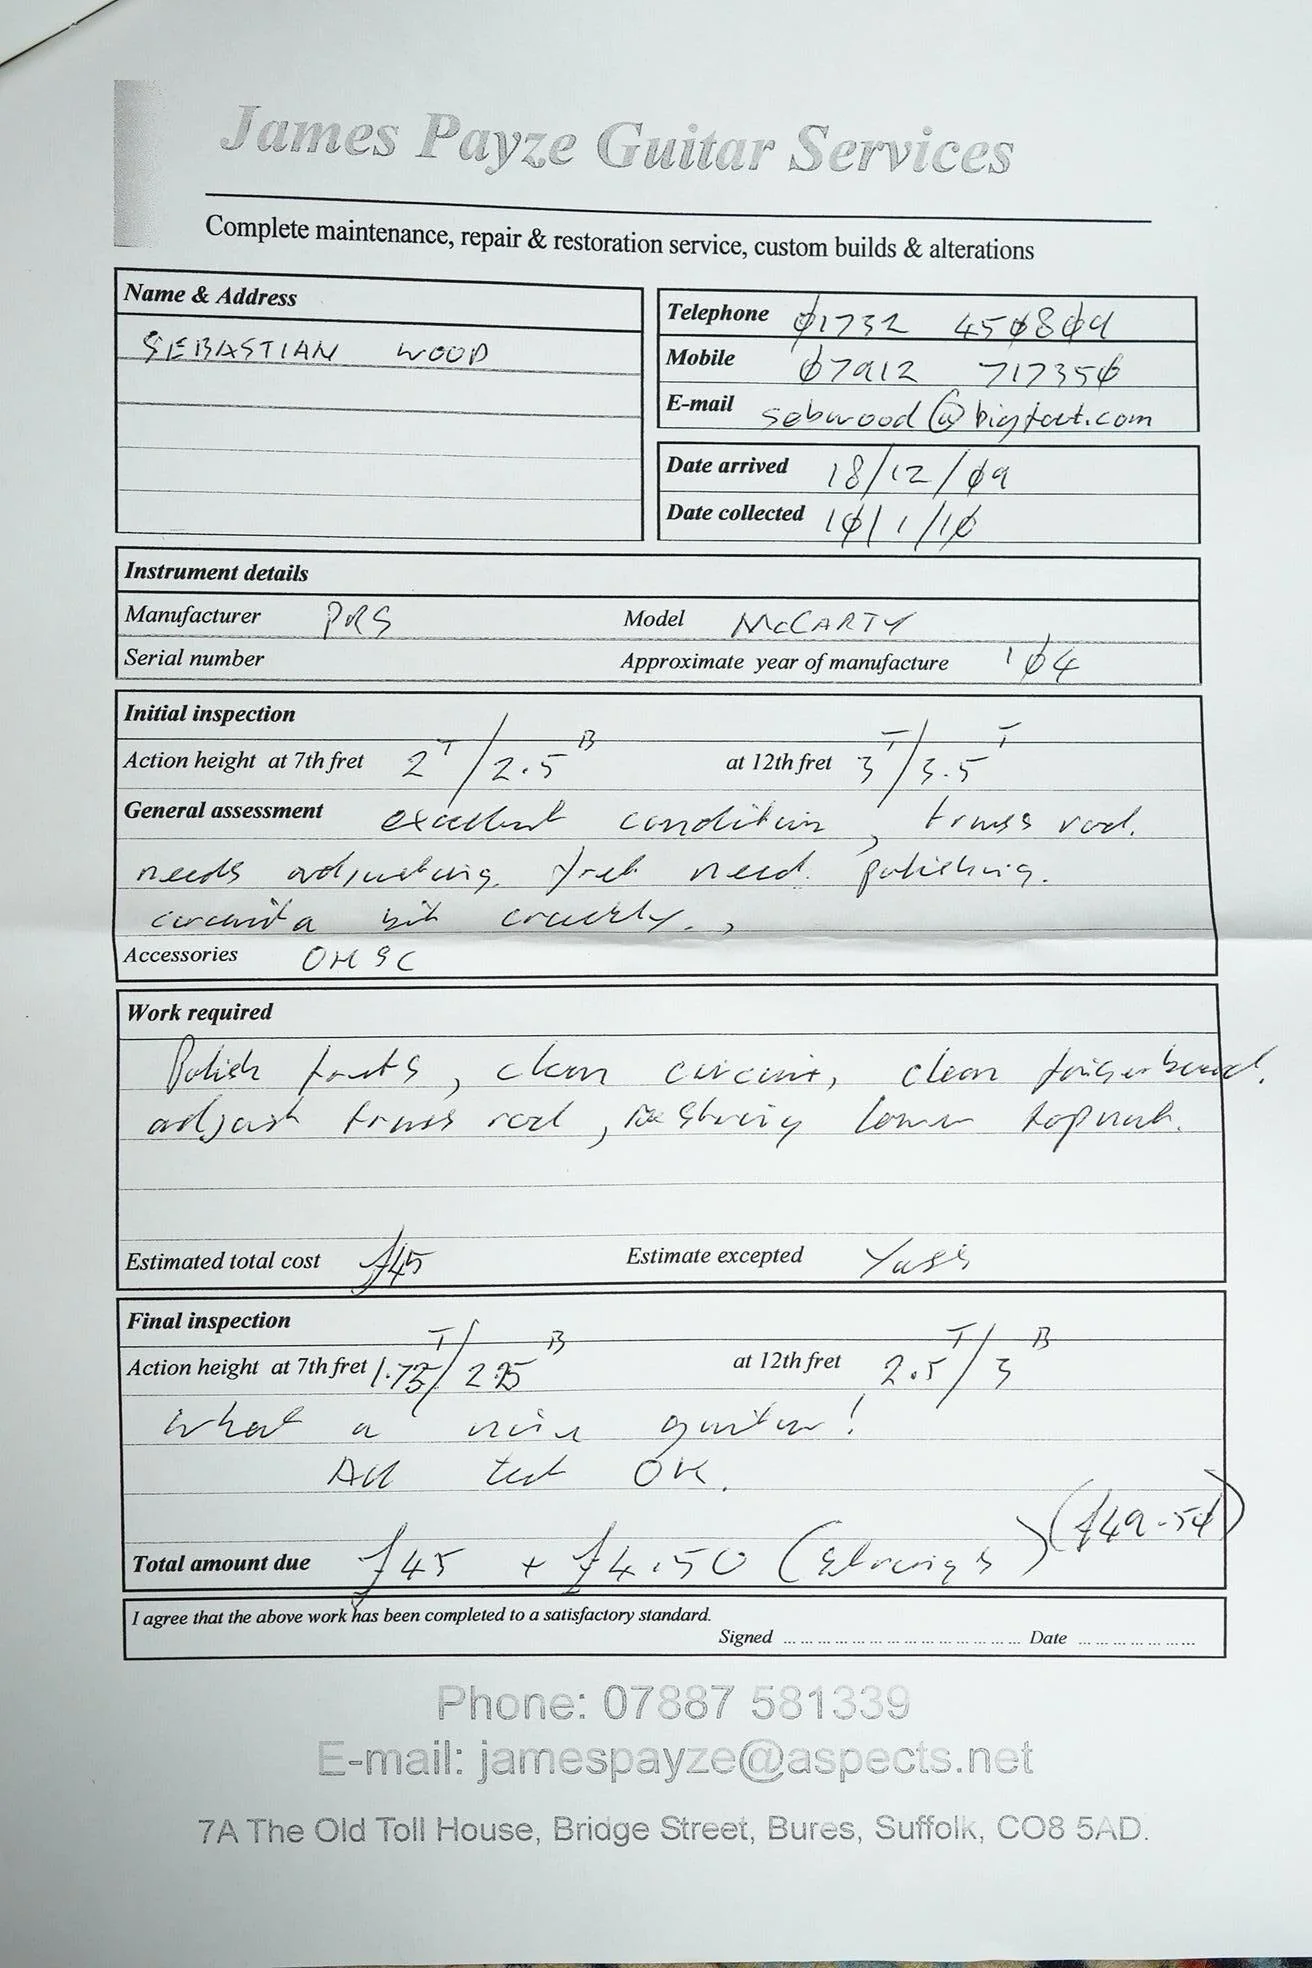 James Payze Guitar Services
Complete maintenance, repair & restoration service, custom builds & alterations
Name & Address
SEBASTIAN WOOD
Telephone 01732 450809
Mobile 07912 717350
E-mail sebwood@bigfoot.com
Date arrived 18/12/09
Date collected 10/1/10
Instrument details
Manufacturer PRS Model McCARTY
Serial number Approximate year of manufacture '04
Initial inspection
Action height at 7th fret 2 T / 2.5 B at 12th fret 3 T / 3.5 T
General assessment excellent condition, truss rod.
needs adjusting. fret need. polishing.
circuit a bit crackly.,
Accessories OHSC
Work required
Polish frets, clean circuit, clean fingerboard.
adjust truss rod, restring lower topnut.
Estimated total cost £45 Estimate excepted
Final inspection
Action height at 7th fret 1.75 T / 2.25 B at 12th fret 2.5 T / 3 B
What a nice guitar!
All test OK.
Total amount due £45 + £4.50 (Strings) (£49.50)
I agree that the above work has been completed to a satisfactory standard.
Signed ........................ Date ...............
Phone: 07887 581339
E-mail: jamespayze@aspects.net
7A The Old Toll House, Bridge Street, Bures, Suffolk, CO8 5AD.